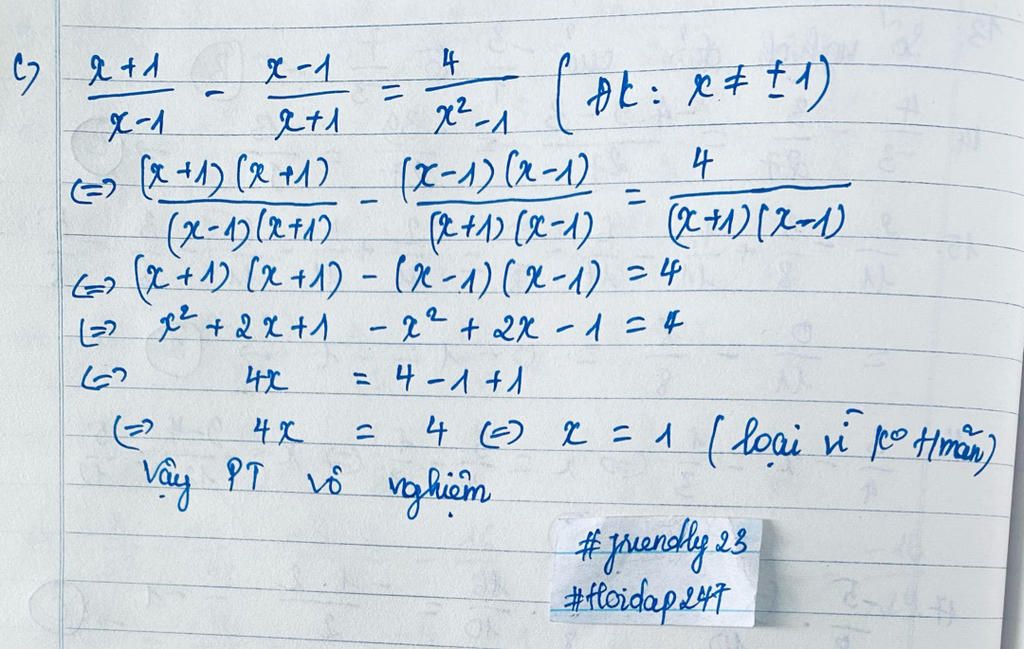 c) (x+1)/(x-1) - (x-1)/(x+1) = 4/(x²-1) (Đk: x ≠ ±1)
(=) (x+1)(x+1)/(x-1)(x+1) - (x-1)(x-1)/(x+1)(x-1) = 4/(x+1)(x-1)
(=) (x+1)(x+1) - (x-1)(x-1) = 4
(=) x² + 2x + 1 - x² + 2x - 1 = 4
(=) 4x = 4 - 1 + 1
(=) 4x = 4 (=) x = 1 (loại vì ko t/mãn)
Vậy PT vô nghiệm
#friendly23
#Hoidap247